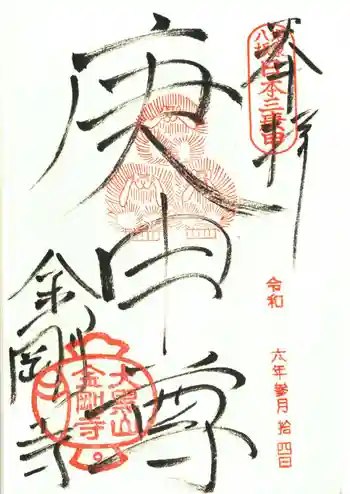 奉拝
八坂
日本三庚申
庚申尊
令和 六年 参月 拾四日
金剛寺
大黒山
金剛寺